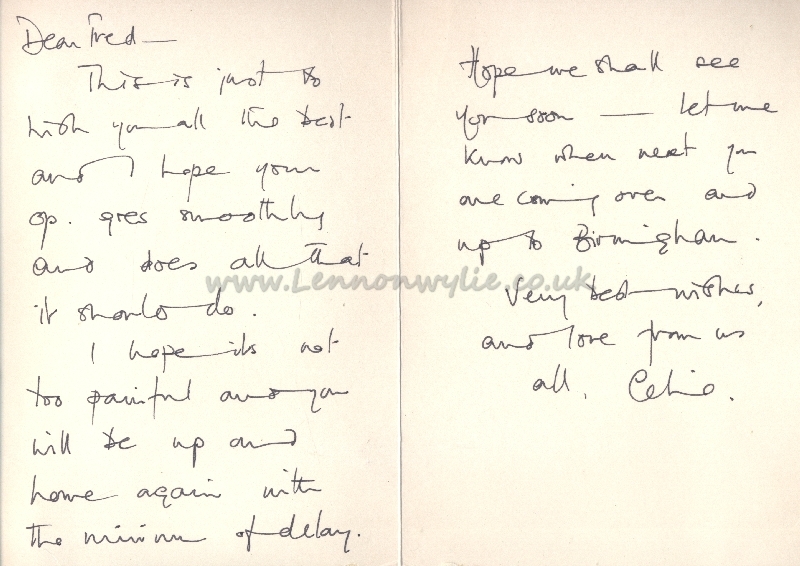 Dear Fred —
This is just to
wish you all the best
and I hope your
op. goes smoothly
and does all that
it should do.
I hope its not
too painful and you
will be up and
home again with
the minimum of delay.
Hope we shall see
you soon — let me
know when next you
are coming over and
up to Birmingham.
Very best wishes,
and love from us
all, Celia.
www.Lennonwylie.co.uk